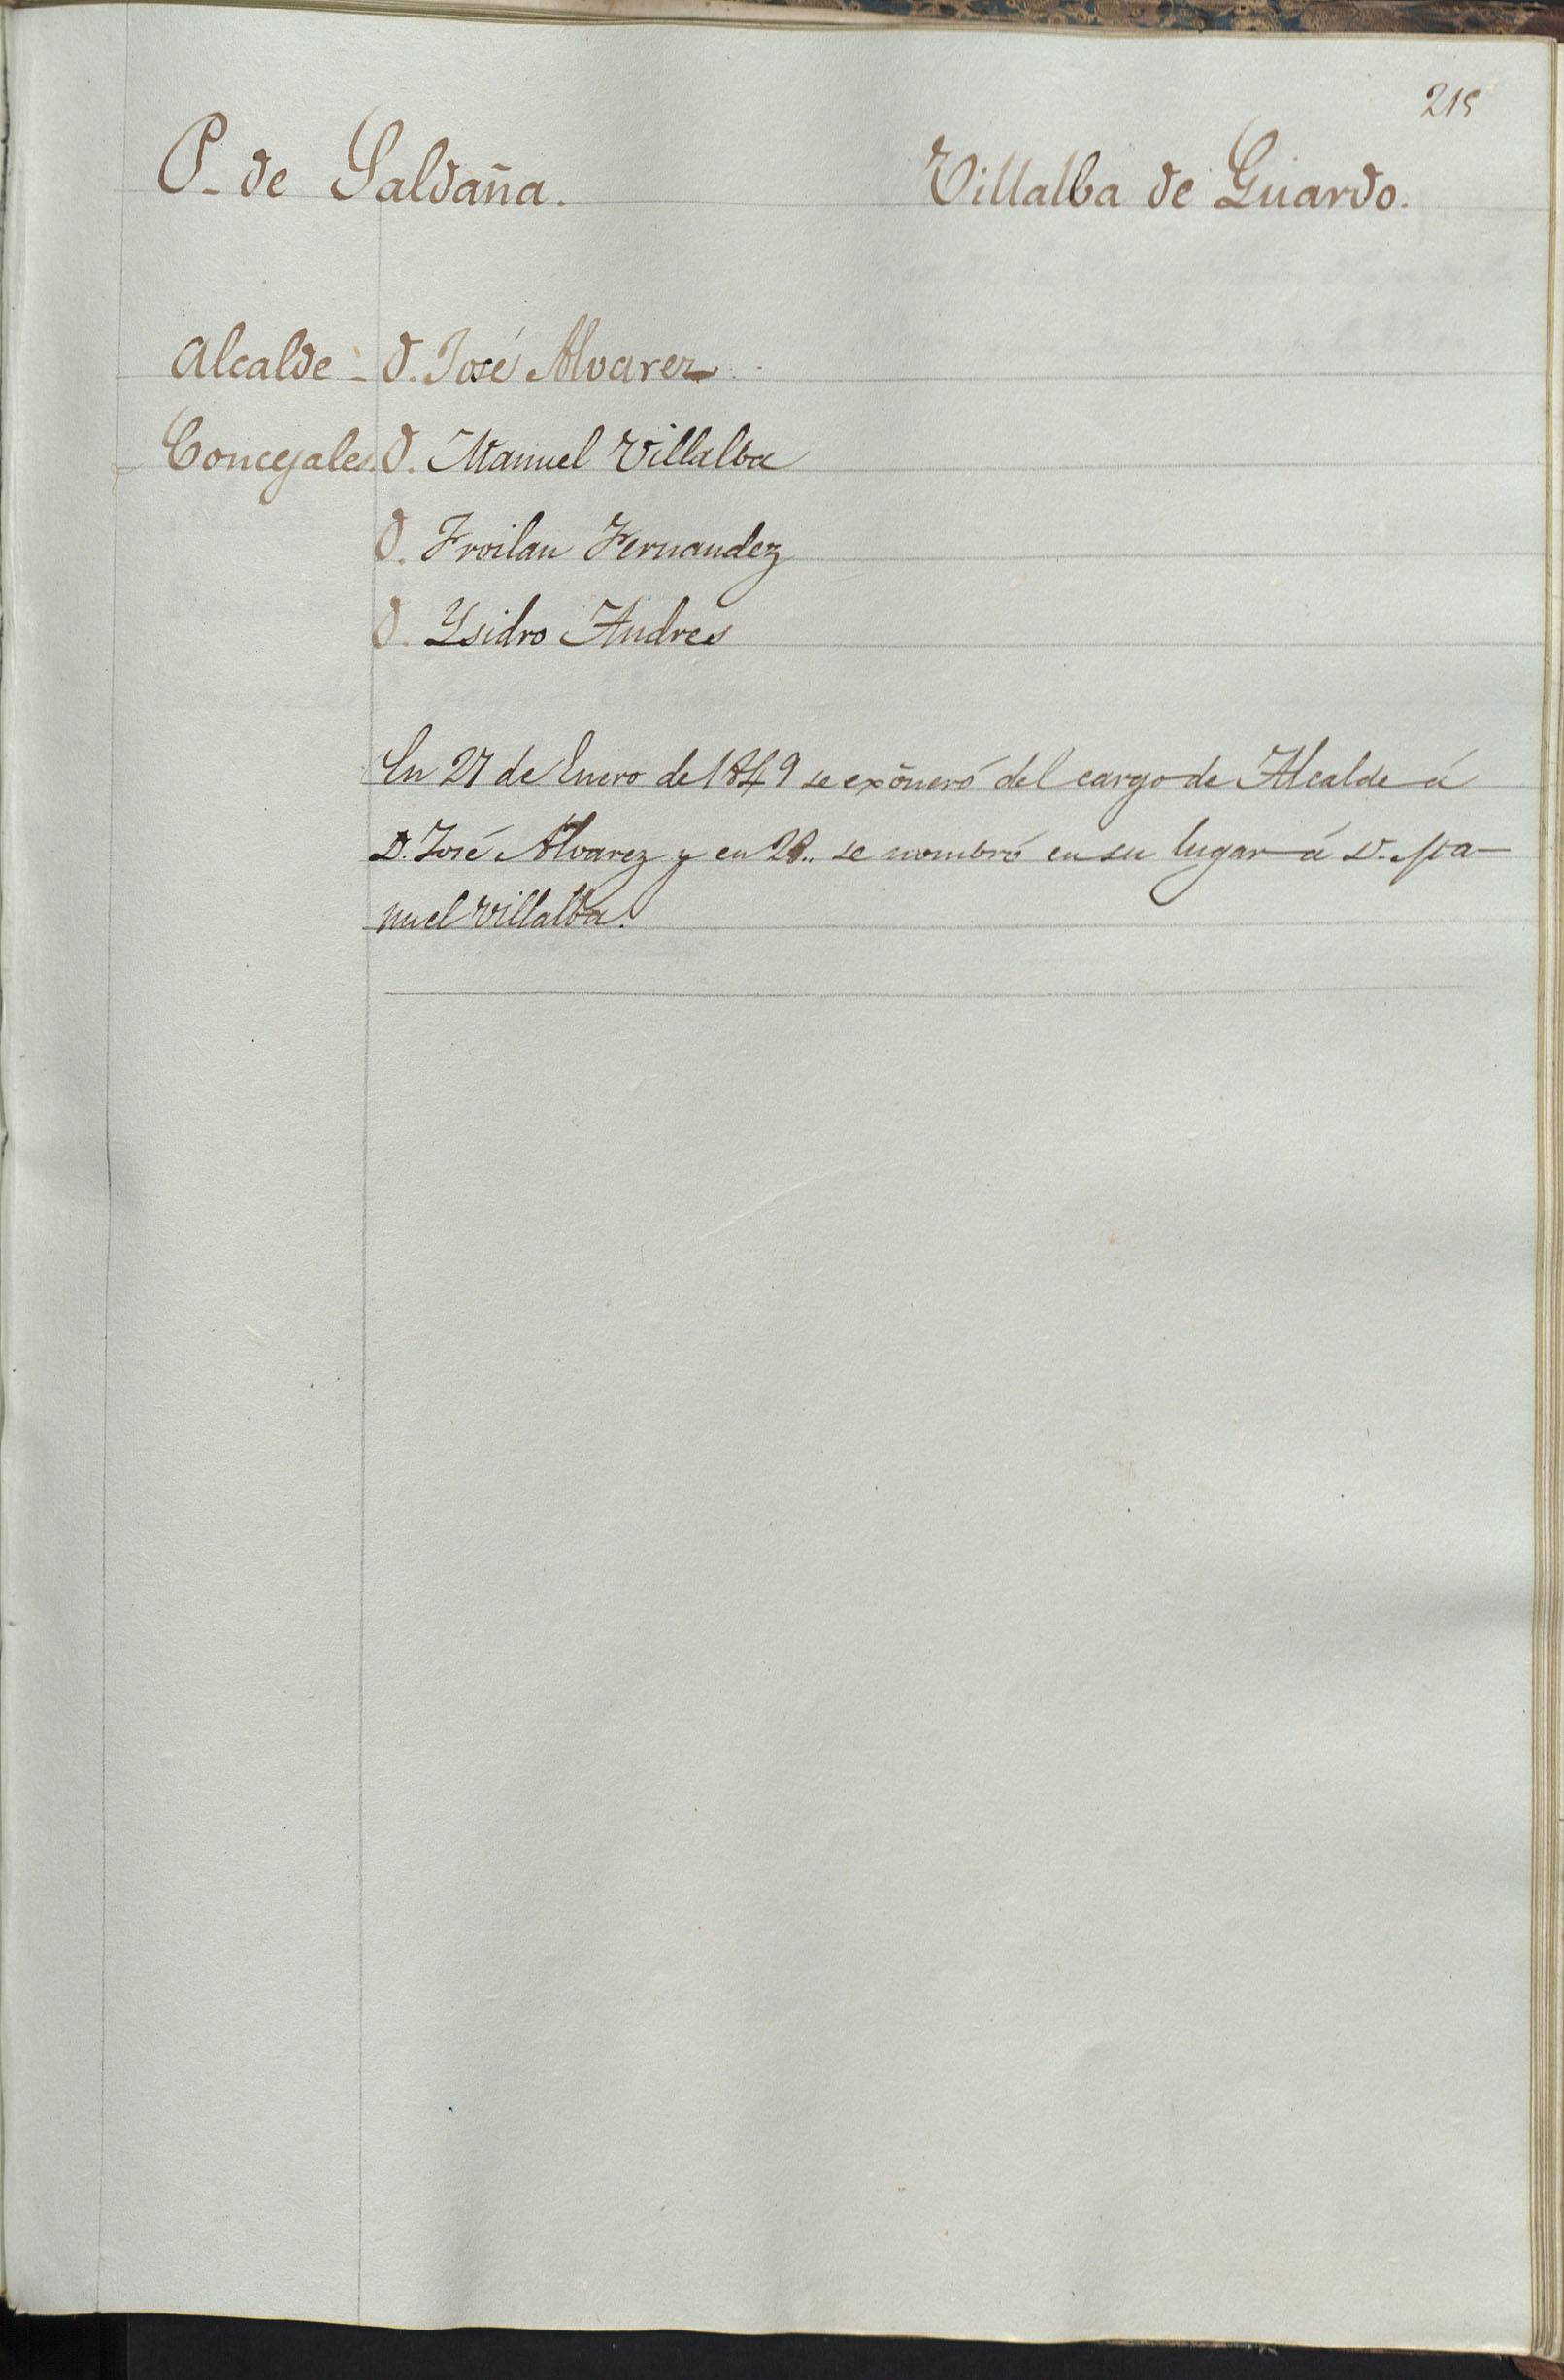 215
P. de Saldaña. Villalba de Guardo.
Alcalde - D. José Alvarez
Concejales D. Manuel Villalba
D. Froilan Fernandez
D. Ysidro Andres
En 27 de Enero de 1849 se exôneró del cargo de Alcalde á
D. José Alvarez y en 28.. se nombró en su lugar á D. Ma-
nuel Villalba.